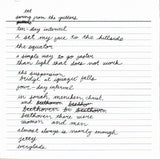 out
song from the gutters
ten-day interval
i set my face to the hillside
the equator
a simple way to go faster
than light that does not work
the suspension
bridge at iguazú falls
four-day interval
in sarah mencken christ
and beethoven
beethoven there were
women and men
almost always is nearly enough
jetty
everglade